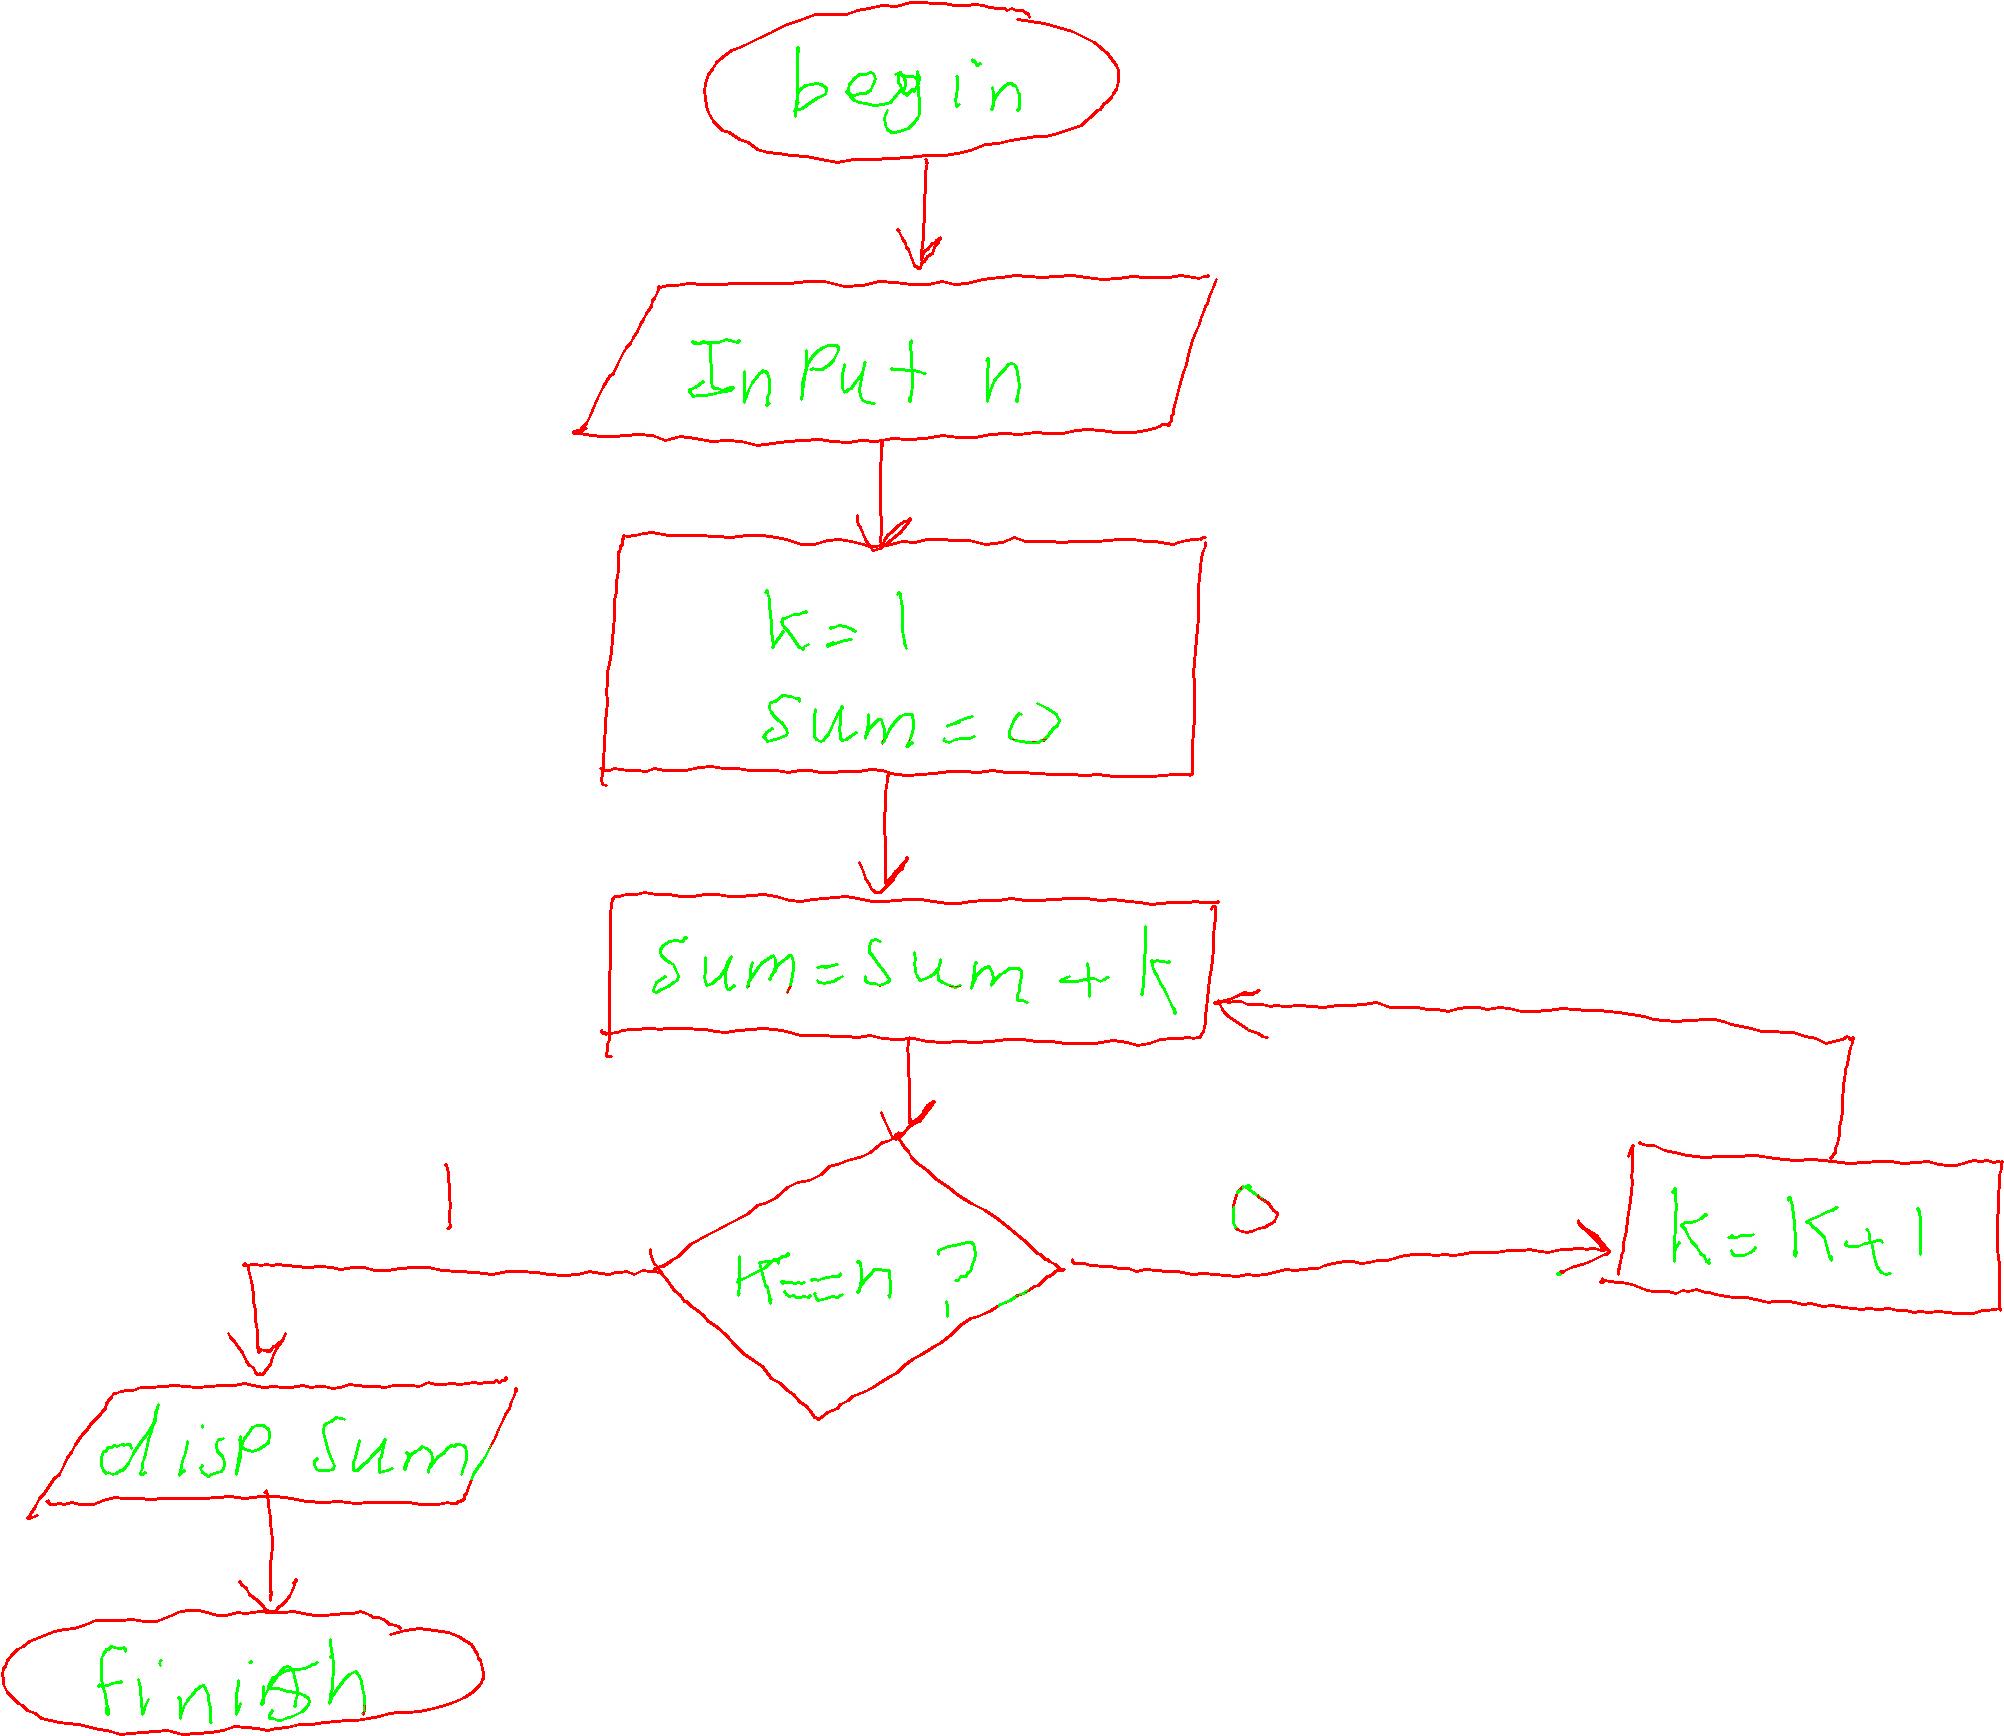 begin
Input n
k=1
sum=0
sum=sum+k
1
0
K==n ?
k=k+1
disp sum
finish